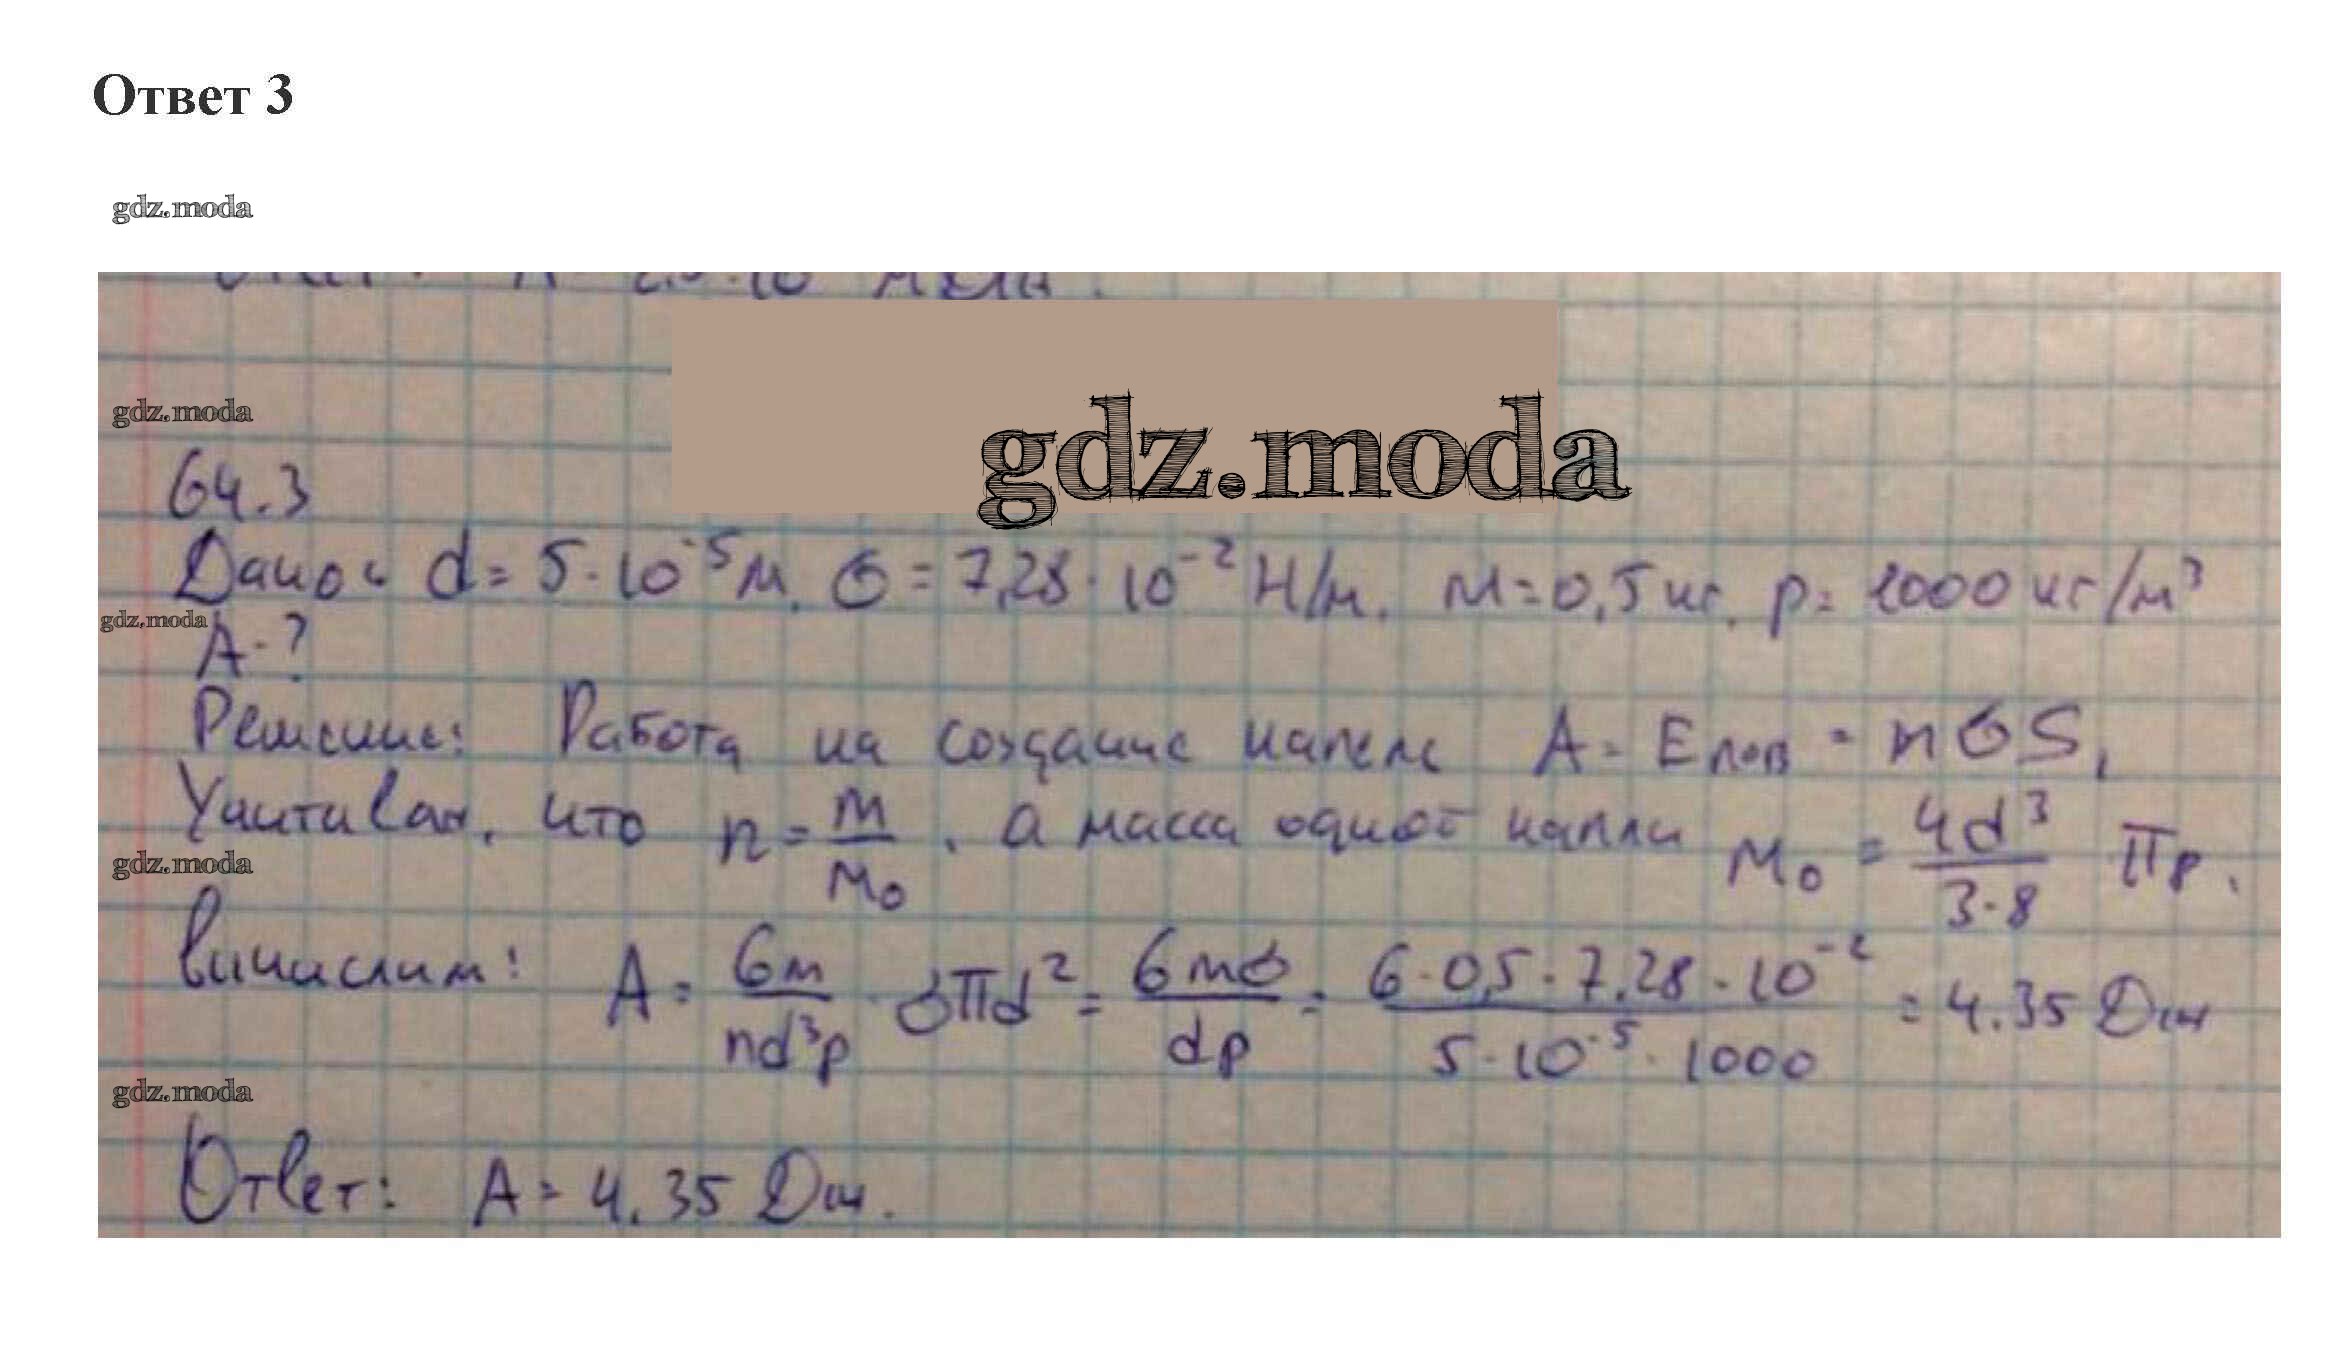 Ответ 3
gdz.moda
gdz.moda
gdz.moda
64.3
Дано: d = 5·10⁻⁵ м. σ = 7,28·10⁻² Н/м. m = 0,5 кг. ρ = 1000 кг/м³
gdz.moda
A-?
Решение: Работа на создание капель A = Eпов = nσS,
Учитывая, что n = m/m₀, а масса одной капли m₀ = 4d³/3·8 πρ.
gdz.moda
Вычислим: A = 6m/πd³ρ · σπd² = 6mσ/dρ = 6·0,5·7,28·10⁻²/5·10⁻⁵·1000 = 4.35 Дж
gdz.moda
Ответ: A = 4.35 Дж.